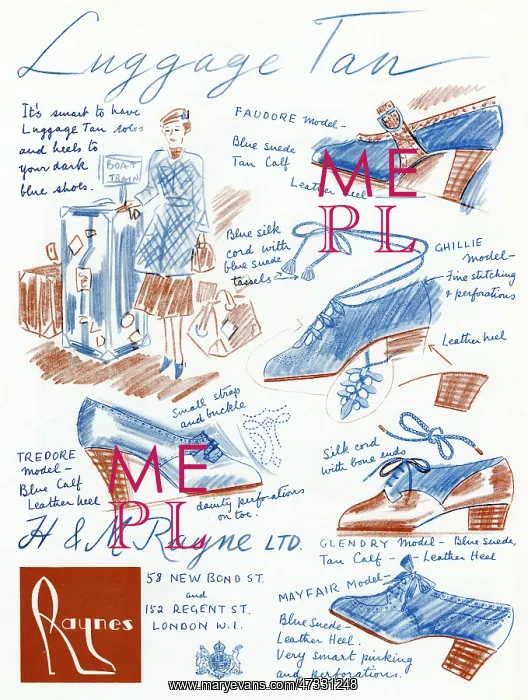 Luggage Tan
It's smart to have
Luggage Tan soles
and heels to
your dark
blue shoes.
BOAT
TRAIN
FAUDORE Model-
Blue suede
Tan Calf
Leather heel
ME
PL
Blue silk
cord with
blue suede
tassels
GHILLIE
Model-
Fine stitching
& perforations
Leather heel
Small strap
and buckle
TREDORE
Model-
Blue Calf
Leather heel
dainty perforations
on toe.
ME
PL
Silk cord
with bone ends
GLENDRY Model- Blue Suede,
Tan Calf - Leather Heel
H & M Rayne LTD.
Raynes
58 NEW BOND ST.
and
152 REGENT ST.
LONDON W.1.
MAYFAIR Model-
Blue Suede-
Leather Heel.
Very smart pinking
and perforations.
www.maryevans.com/47331248